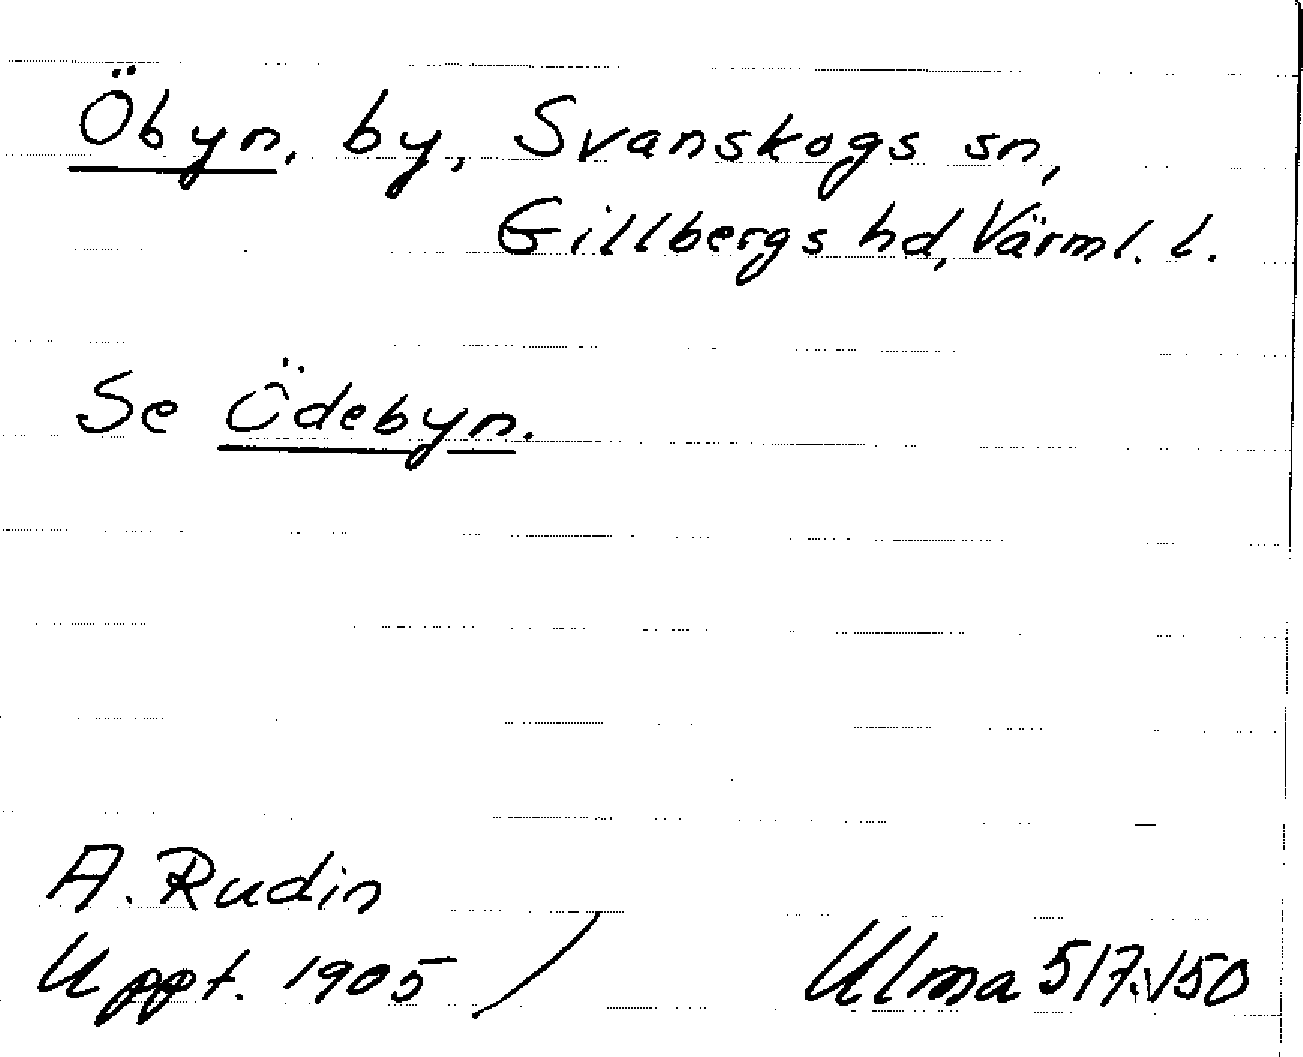 Öbyn, by, Svanskogs sn,
Gillbergs hd, Värml. l.
Se Ödebyn.
A. Rudin
Uppt. 1905
Ulma 517:150